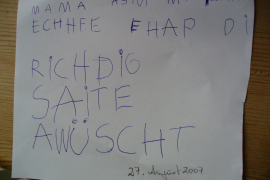 MAMA
ECHHFE EHAP DI
RICHDIG
SAITE
AWÜSCHT
27. August 2007